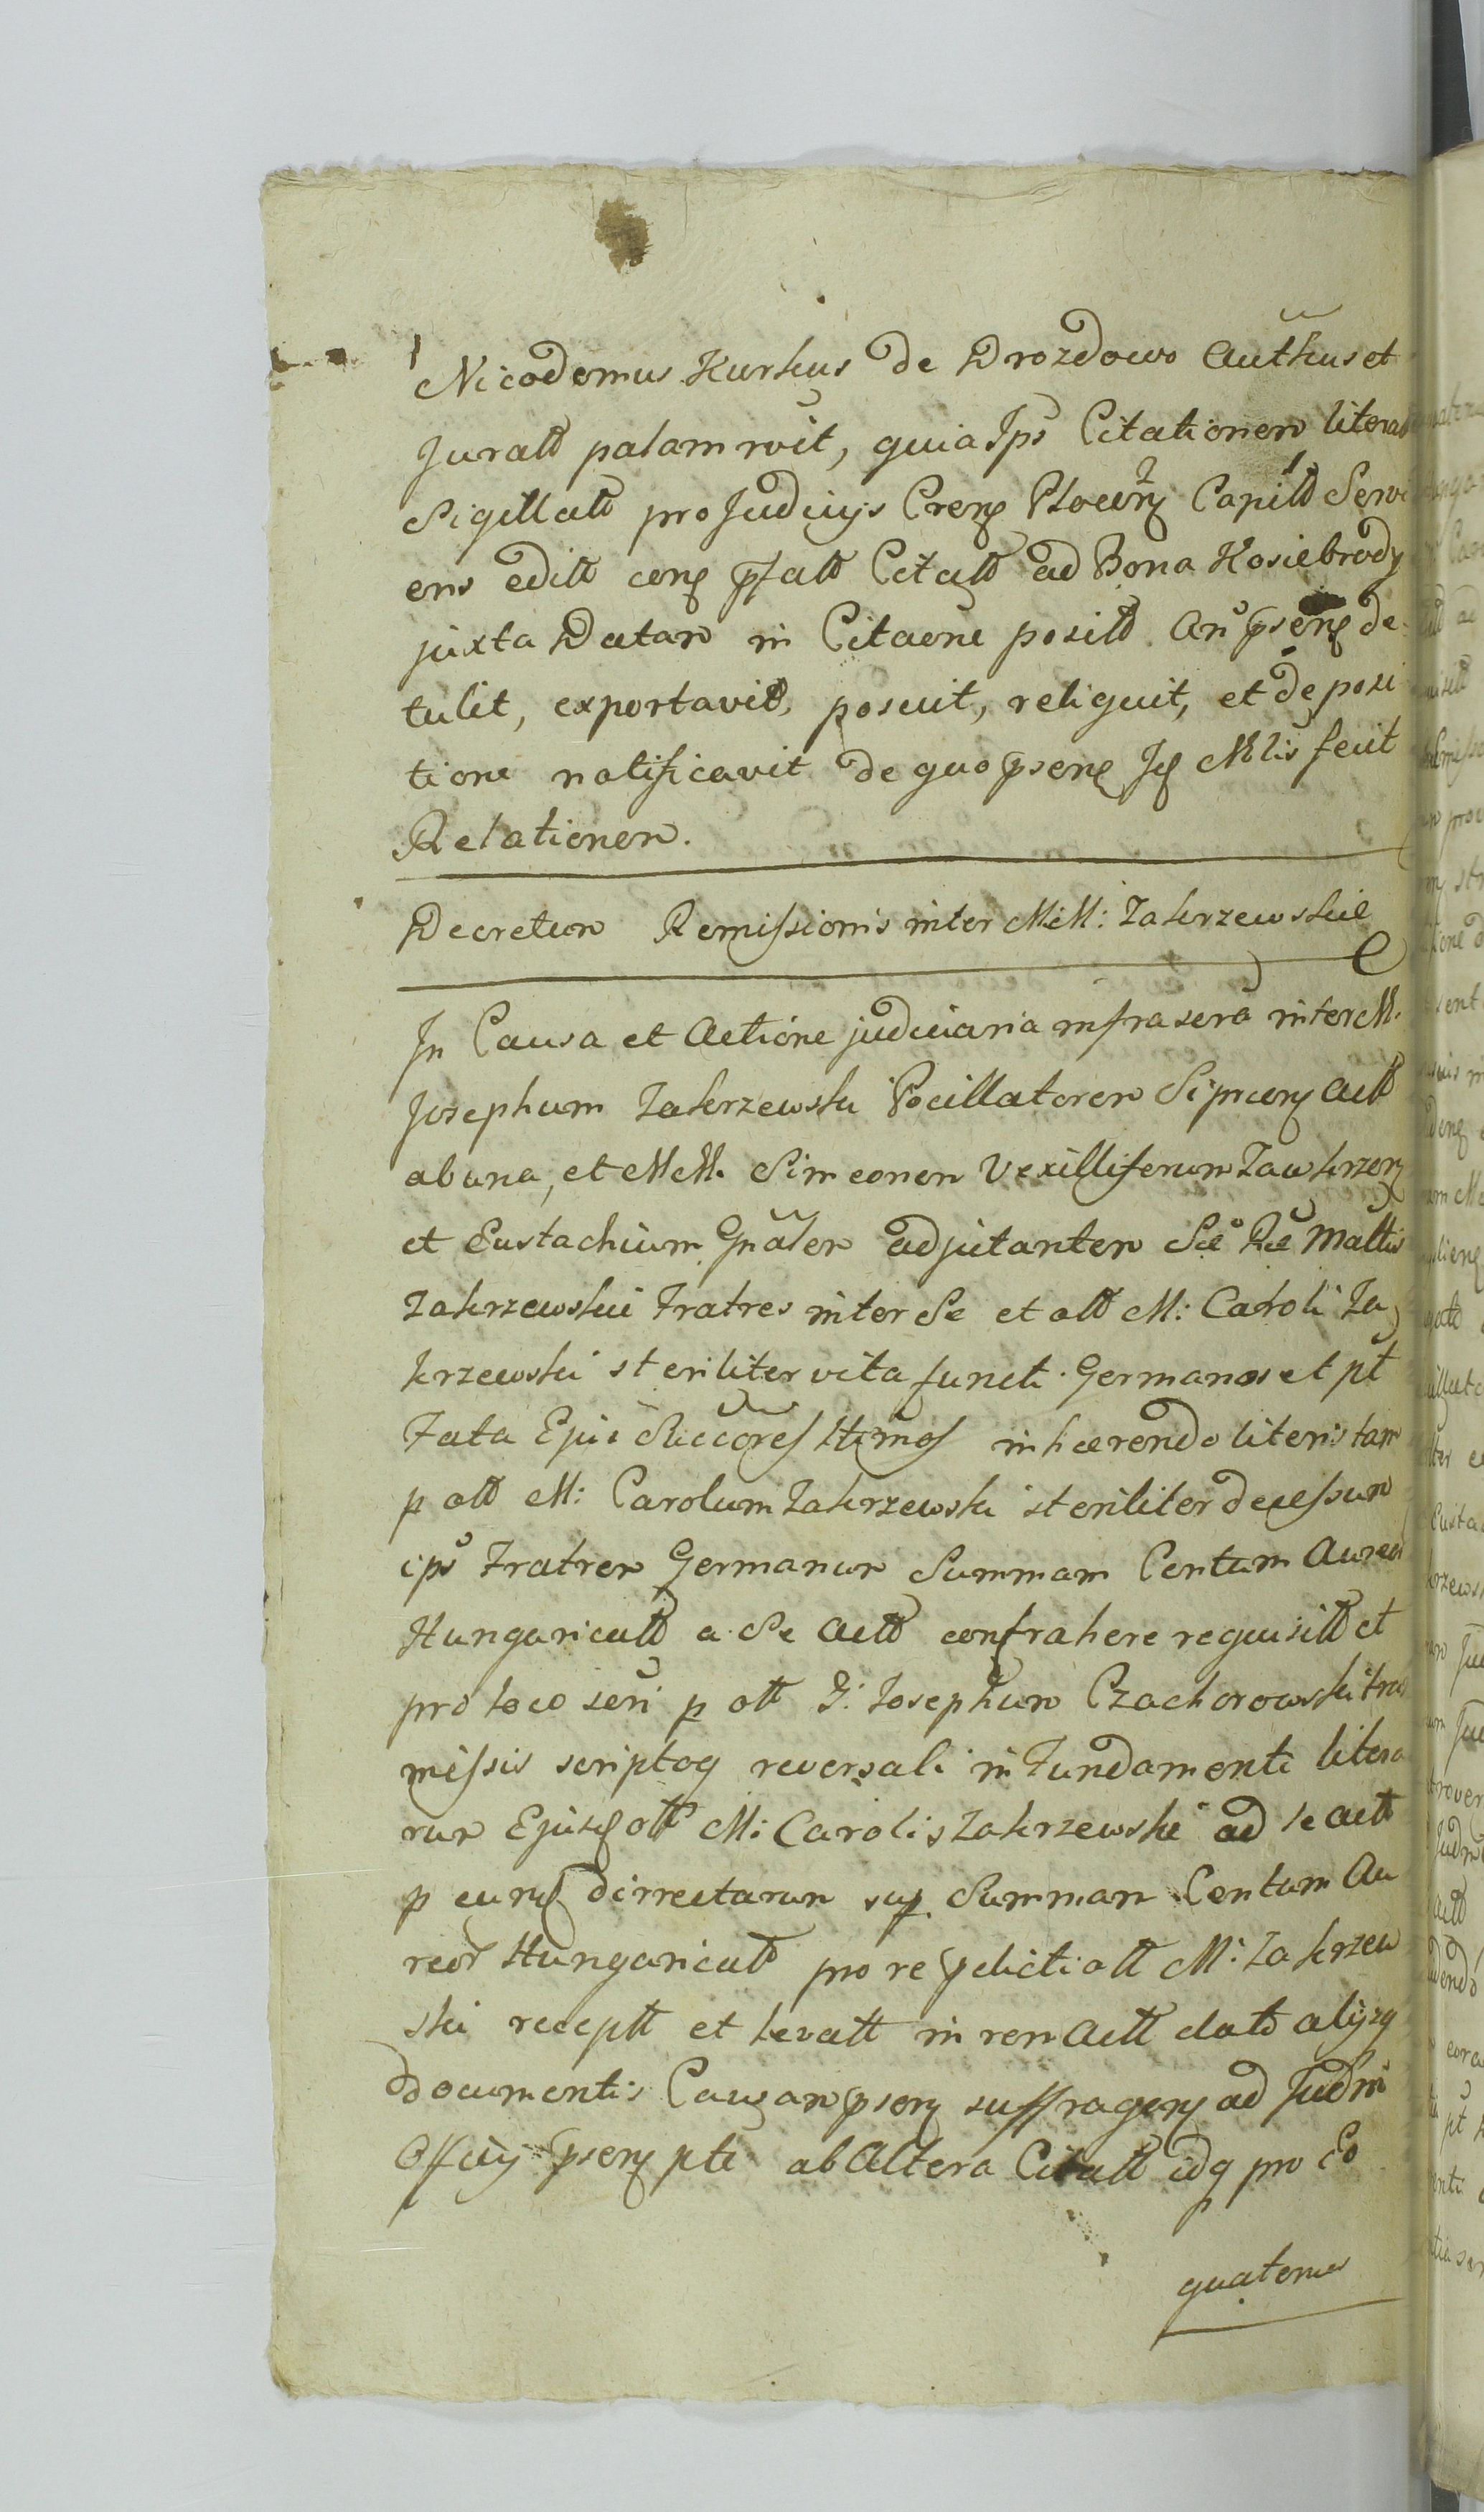 Nicodemus Kurkus de Drozdowo Authus et
Juratt palam rvit, quia Ips Citationem literas
Sigillatt pro Judicijs Crens Ploceñ Capitt Servi
ens editt cong pfatt Citatt ad Bona Kosiebrody
juxta Datam in Citaone positt an psens de
tulit, exportavit, posuit, reliquit, et de posi
tione notificavit de quo psens Js Mlis fecit
Relationem.
Decretum Remissionis inter MM: Zakrzewskie
In Causa et Actione judiciaria infrasera inter M.
Josephum Zakrzewski Pocillatorem Sipcens Actt
ab una, et MM. Simeonem Vexilliferum Zawkrzens
et Eustachium Gnalem adjutantem Sae Rae Mattis
Zakrzewskie Fratres inter Se et ott M: Caroli Za
krzewski steriliter vita functi Germanos et pt
Fata Ejus Succores ltimos inhærendo literis tam
p ott M: Carolum Zakrzewski steriliter decessum
ips Fratrem Germanum Summam Centum Aureo
Hungaricatt a Se Actt contrahere requisitt et
pro loco seri p ott G: Josephum Czachorowski tras
missis scriptoq reversali in Fundamenti litera
rum Ejusq ott M: Carolis Zakrzewski ad se actt
p eunq dirrectarum sup Summam Centum Au
reor Hungaricatt pro re pdicti ott M: Zakrzew
ski receptt et levatt in rem Actt datt alijsq
documentis Causam psens suffragens ad Judm
Officij psens pti ab Altera Citatt idq pro Eo
quatenus